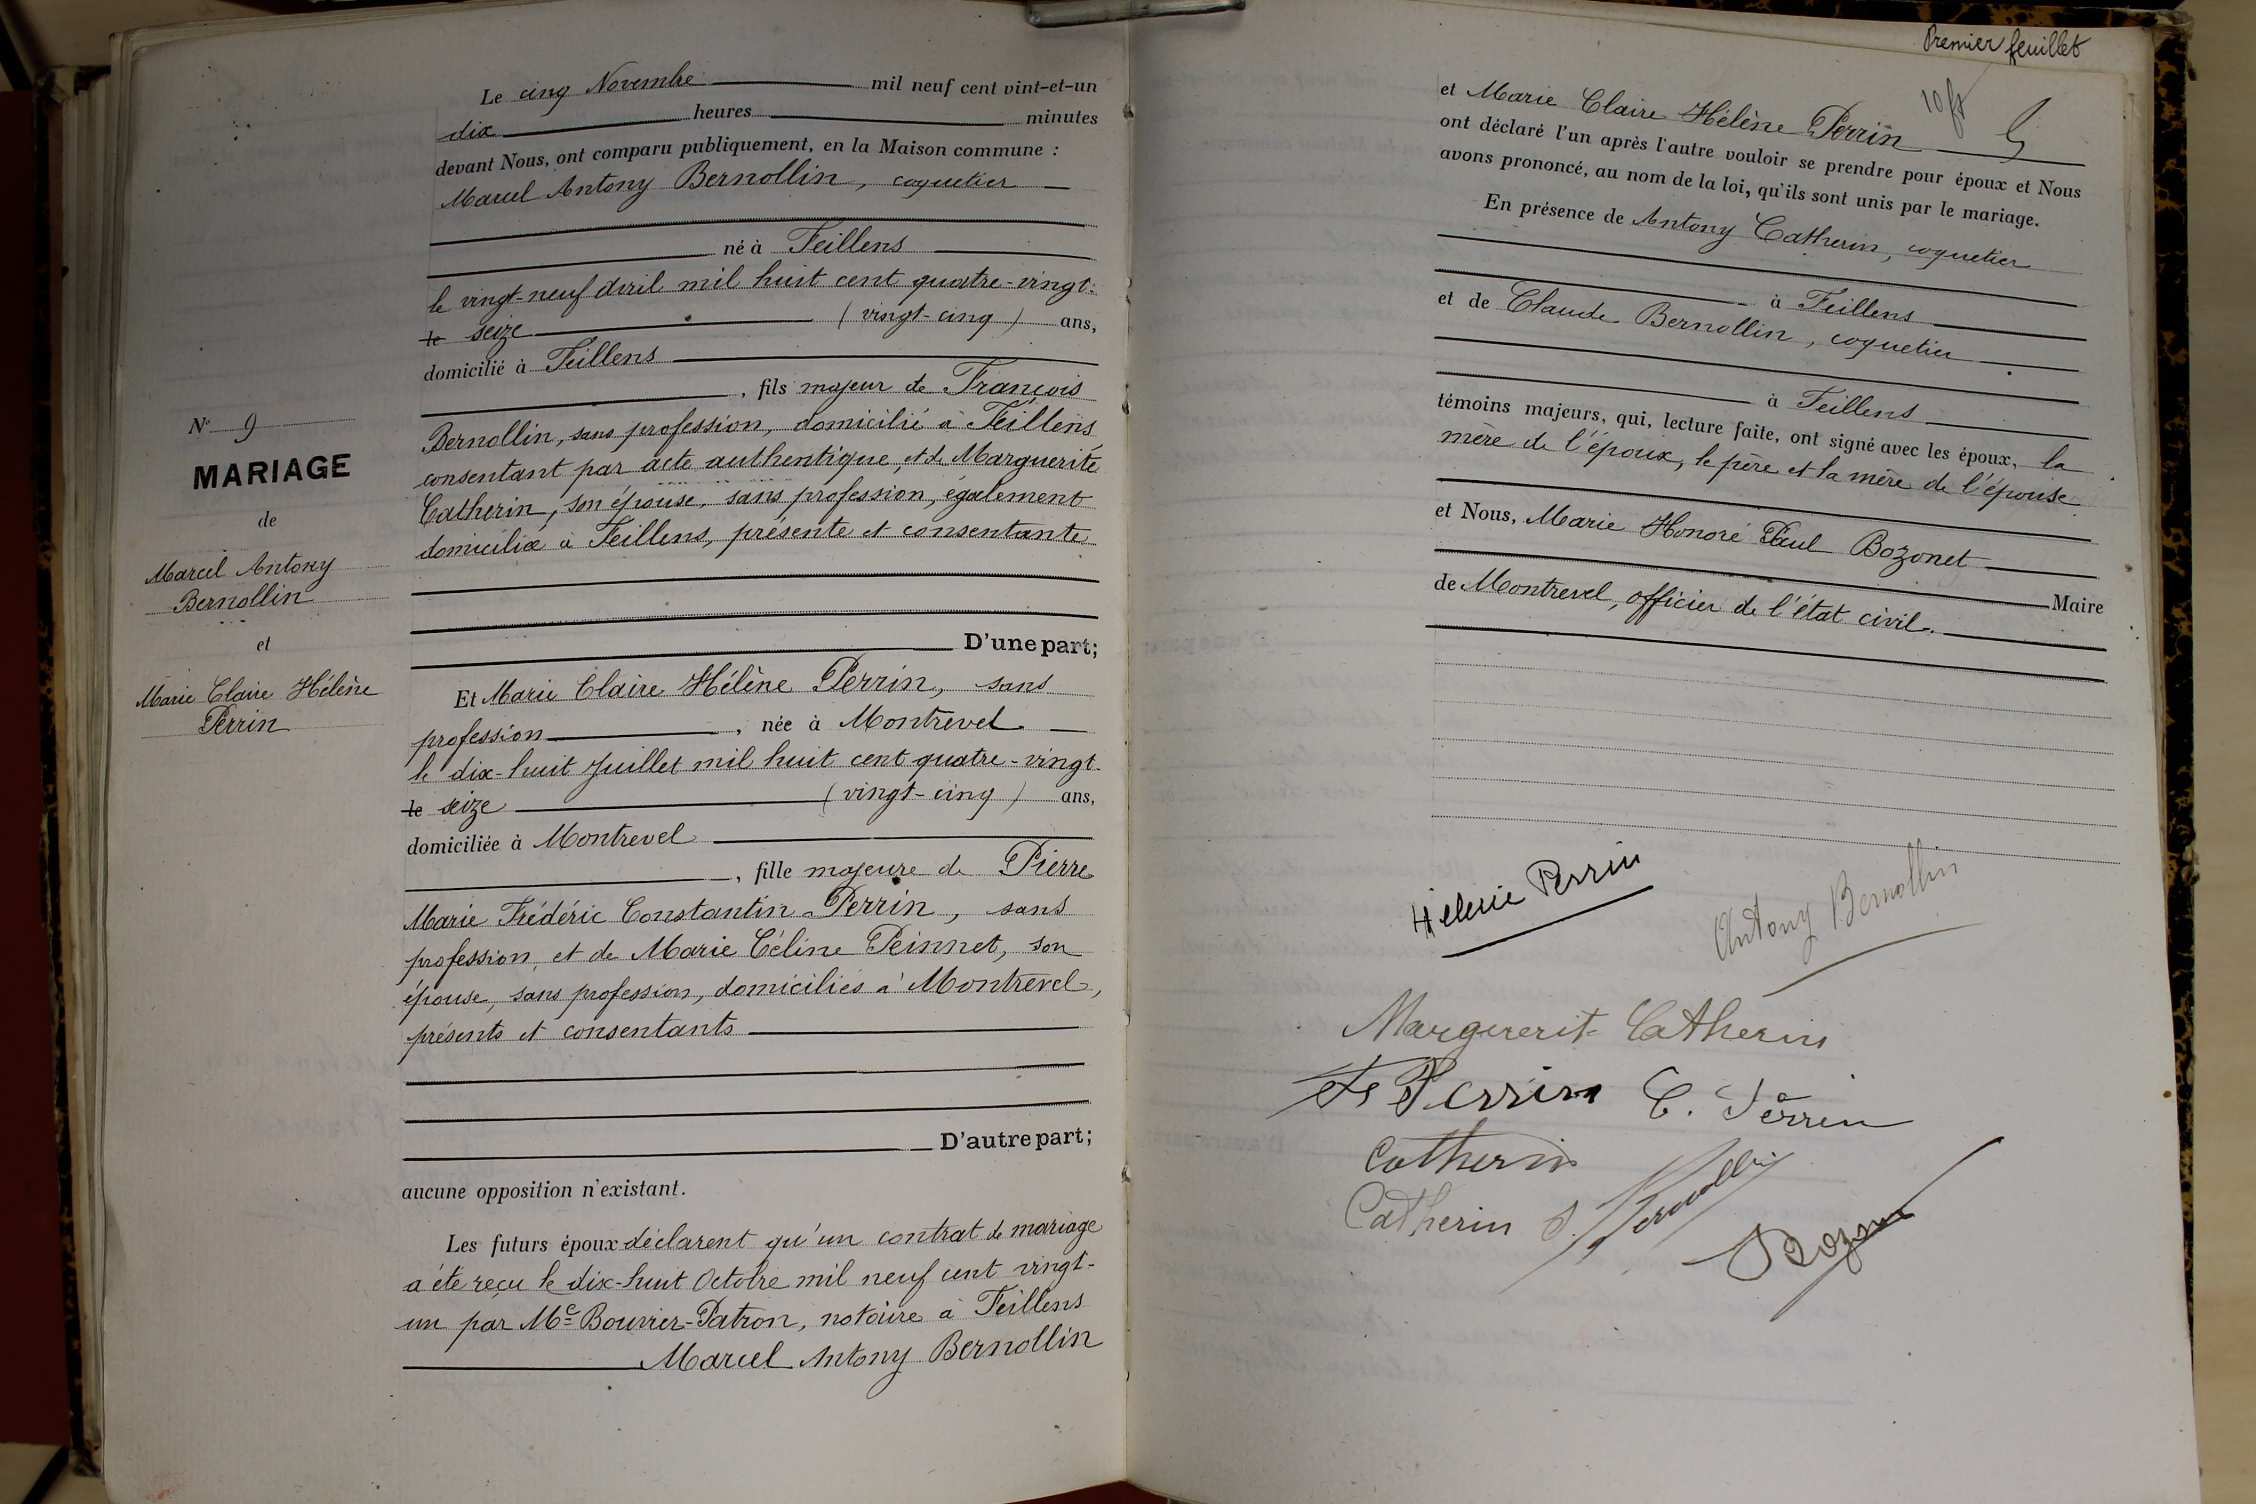 Le cinq Novembre mil neuf cent vint-et-un
dix heures minutes
devant Nous, ont comparu publiquement, en la Maison commune :
Marcel Antony Bernollin, coquetier
né à Feillens
le vingt-neuf Avril mil huit cent quatre-vingt-
le seize (vingt-cinq) ans,
domicilié à Feillens
, fils majeur de François
Bernollin, sans profession, domicilié à Feillens
consentant par acte authentique, et de Marguerite
Catherin, son épouse, sans profession, également
domiciliée à Feillens, présente et consentante
D'une part;
N° 9
MARIAGE
de
Marcel Antony
Bernollin
et
Marie Claire Hélène
Perrin
Et Marie Claire Hélène Perrin, sans
profession, née à Montrevel
le dix-huit Juillet mil huit cent quatre-vingt-
le seize (vingt-cinq) ans,
domiciliée à Montrevel
, fille majeure de Pierre
Marie Frédéric Constantin Perrin, sans
profession, et de Marie Céline Peinnet, son
épouse, sans profession, domiciliés à Montrevel,
présents et consentants
D'autre part;
aucune opposition n'existant.
Les futurs époux déclarent qu'un contrat de mariage
a été reçu le dix-huit Octobre mil neuf cent vingt-
un par Me Bouvier-Patron, notaire à Feillens
Marcel Antony Bernollin
Premier feuillet
et Marie Claire Hélène Perrin
ont déclaré l'un après l'autre vouloir se prendre pour époux et Nous
avons prononcé, au nom de la loi, qu'ils sont unis par le mariage.
En présence de Antony Catherin, coquetier
à Feillens
et de Claude Bernollin, coquetier
à Feillens
témoins majeurs, qui, lecture faite, ont signé avec les époux, la
mère de l'époux, le père et la mère de l'épouse
et Nous, Marie Honoré Paul Bozonet
Maire
de Montrevel, officier de l'état civil.
Hélène Perrin
Antony Bernollin
Marguerit Catherin
Perrin C. Perrin
Catherin
Catherin